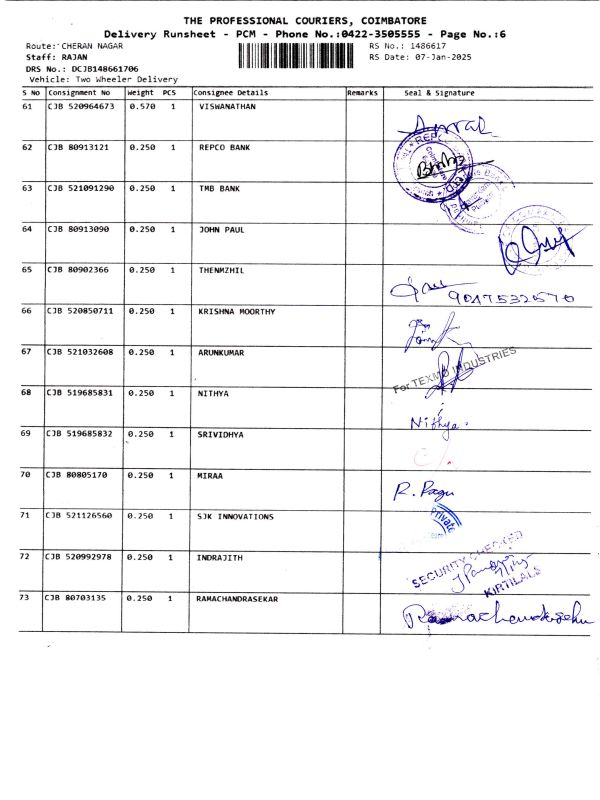 THE PROFESSIONAL COURIERS, COIMBATORE
Delivery Runsheet - PCM - Phone No.:0422-3505555 - Page No.:6
Route: CHERAN NAGAR
RS No.: 1486617
Staff: RAJAN
RS Date: 07-Jan-2025
DRS No.: DCJB148661706
Vehicle: Two Wheeler Delivery
S No Consignment No Weight PCS Consignee Details Remarks Seal & Signature
61 CJB 520964673 0.570 1 VISWANATHAN
62 CJB 80913121 0.250 1 REPCO BANK
63 CJB 521091290 0.250 1 TMB BANK
64 CJB 80913090 0.250 1 JOHN PAUL
65 CJB 80902366 0.250 1 THENMZHIL
66 CJB 520850711 0.250 1 KRISHNA MOORTHY
67 CJB 521032608 0.250 1 ARUNKUMAR
For TEXMO INDUSTRIES
68 CJB 519685831 0.250 1 NITHYA
Nithya.
69 CJB 519685832 0.250 1 SRIVIDHYA
70 CJB 80805170 0.250 1 MIRAA
R. Ragu
71 CJB 521126560 0.250 1 SJK INNOVATIONS
Private
72 CJB 520992978 0.250 1 INDRAJITH
SECURITY CHECKED
KIRTILALS
73 CJB 80703135 0.250 1 RAMACHANDRASEKAR